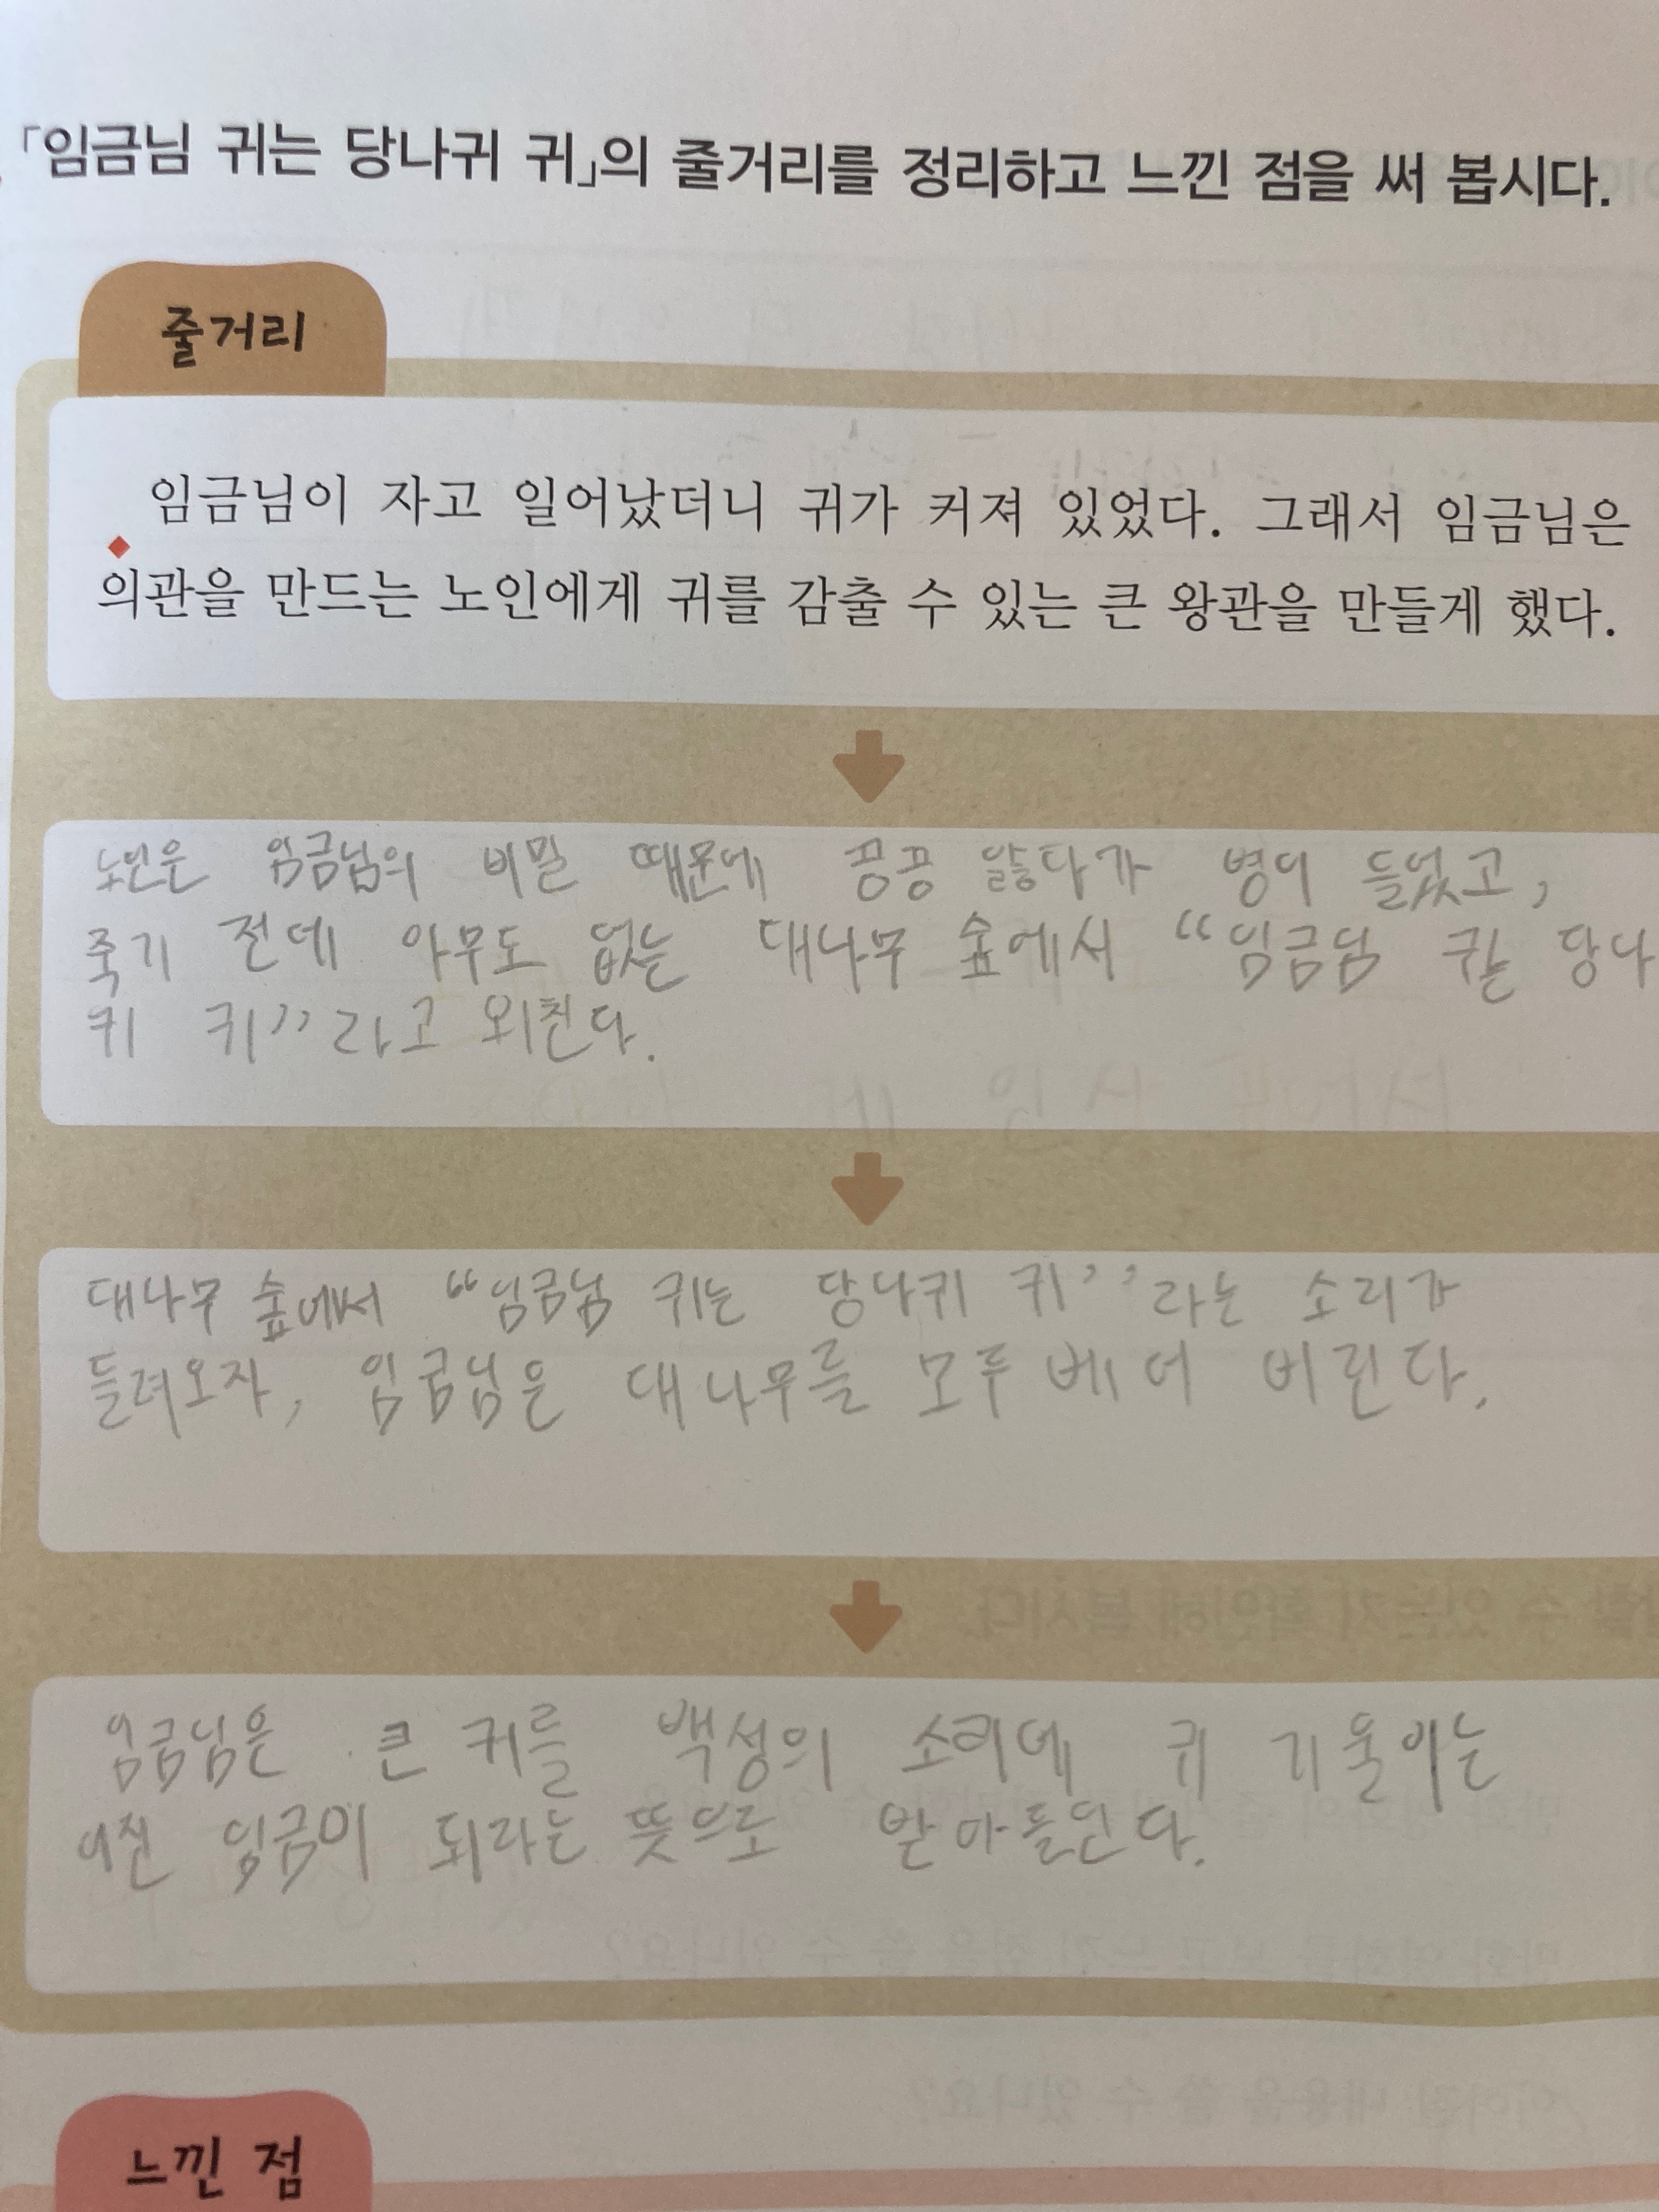 「임금님 귀는 당나귀 귀」의 줄거리를 정리하고 느낀 점을 써 봅시다.
줄거리
임금님이 자고 일어났더니 귀가 커져 있었다. 그래서 임금님은
의관을 만드는 노인에게 귀를 감출 수 있는 큰 왕관을 만들게 했다.
노인은 임금님의 비밀 때문에 끙끙 앓다가 병이 들었고,
죽기 전에 아무도 없는 대나무 숲에서 “임금님 귀는 당나
귀 귀”라고 외친다.
대나무 숲에서 “임금님 귀는 당나귀 귀”라는 소리가
들려오자, 임금님은 대나무를 모두 베어 버린다.
임금님은 큰 귀를 백성의 소리에 귀 기울이는
어진 임금이 되라는 뜻으로 받아들인다.
느낀 점